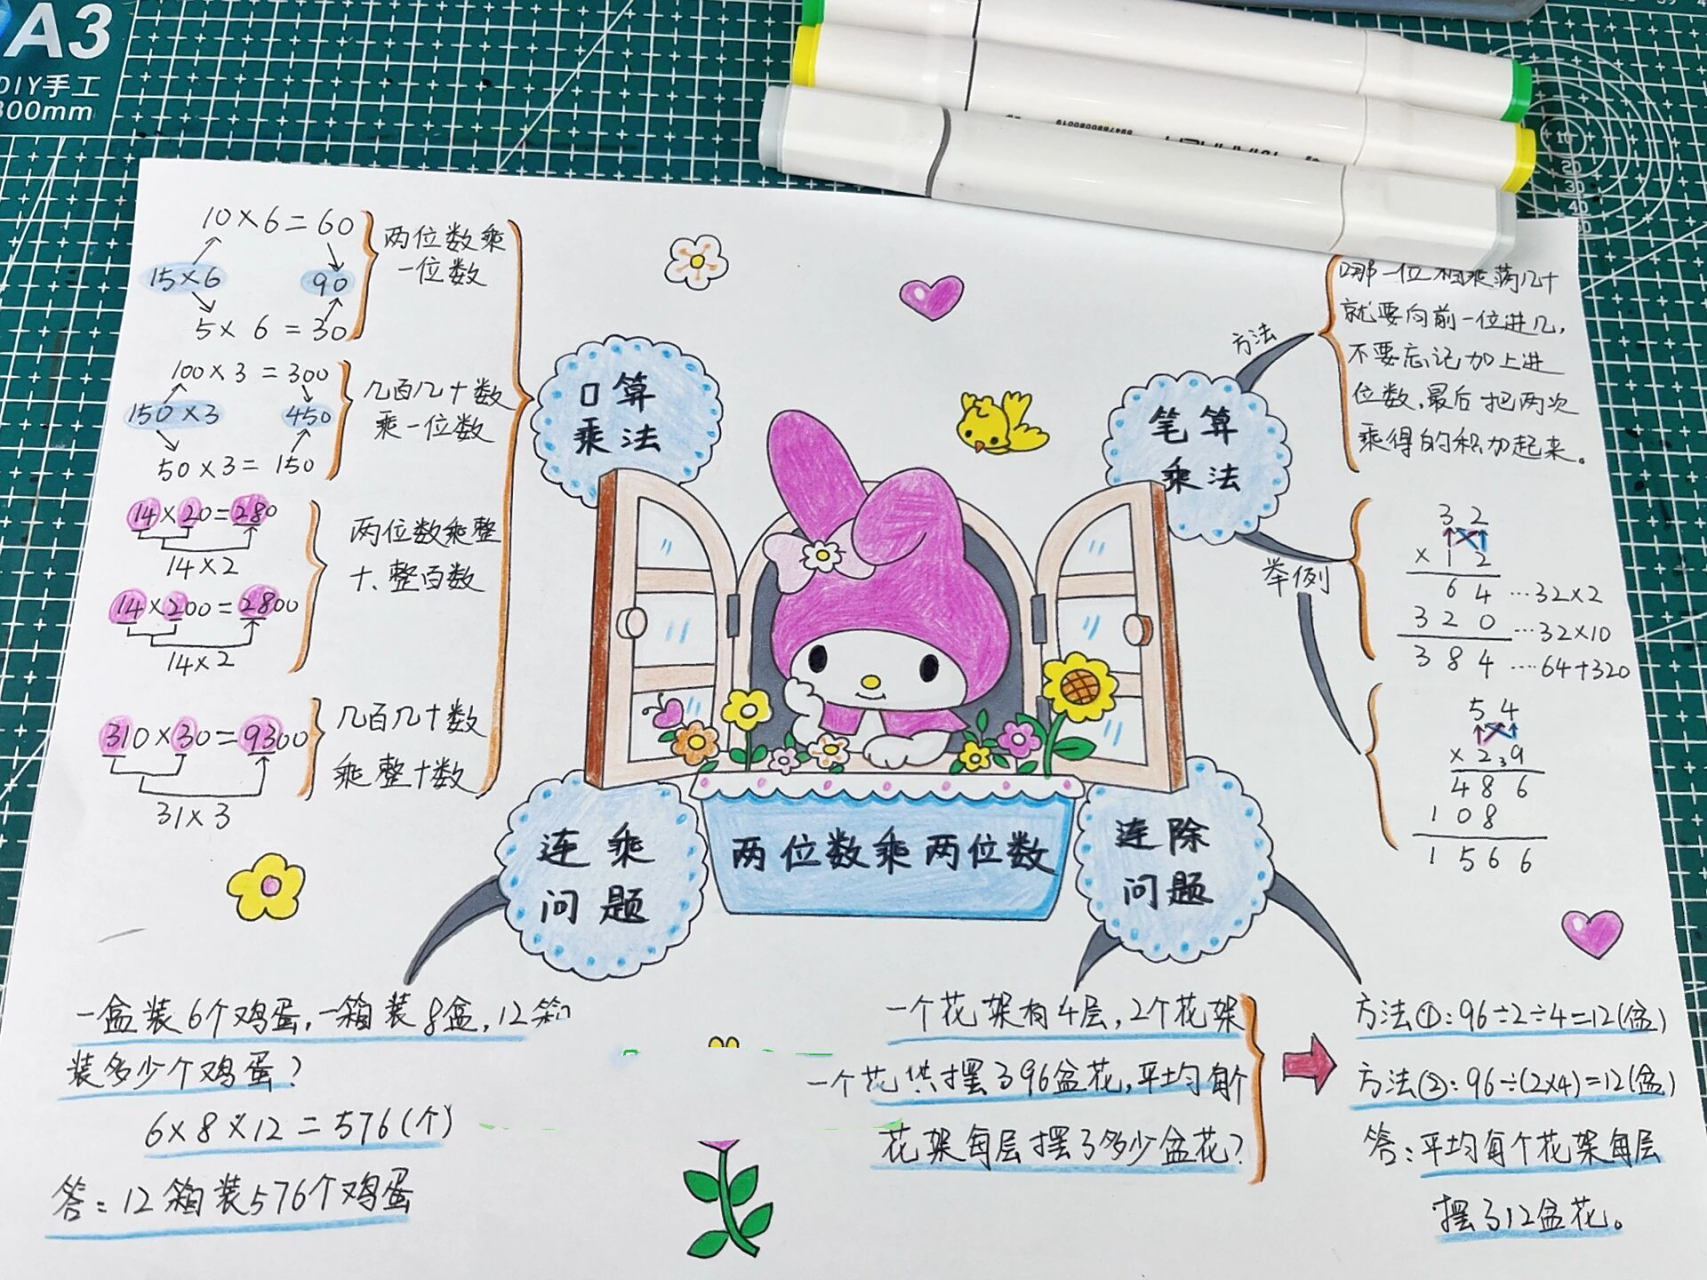 A3
DIY手工
300mm
10×6=60
15×6
90
5×6=30
两位数乘
一位数
100×3=300
150×3
450
50×3=150
几百几十数
乘一位数
14×20=280
14×2
14×200=2800
14×2
两位数乘整
十、整百数
310×30=9300
31×3
几百几十数
乘整十数
口算
乘法
笔算
乘法
方法
哪一位相乘满几十
就要向前一位进几,
不要忘记加上进
位数,最后把两次
乘得的积加起来。
举例
32
×12
64 …32×2
320 …32×10
384 …64+320
54
×2₃9
486
108
1566
连乘
问题
两位数乘两位数
连除
问题
一盒装6个鸡蛋,一箱装8盒,12箱
装多少个鸡蛋?
6×8×12=576(个)
答:12箱装576个鸡蛋
一个花架有4层,2个花架
一个花共摆了96盆花,平均每个
花架每层摆了多少盆花?
方法①:96÷2÷4=12(盆)
方法②:96÷(2×4)=12(盆)
答:平均每个花架每层
摆了12盆花。
10
20
30
40